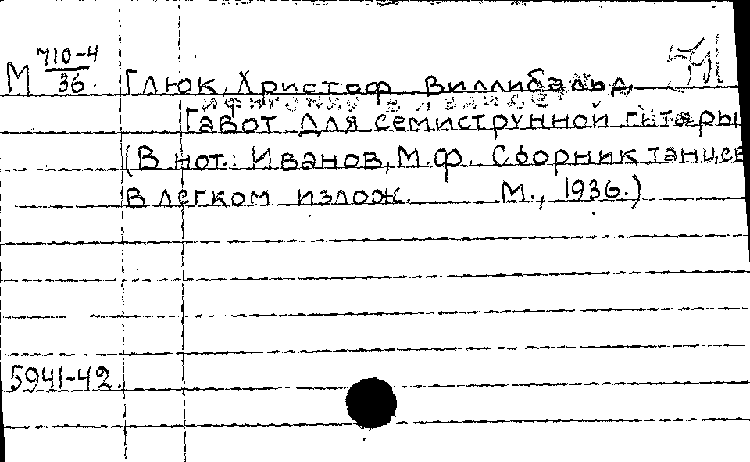 М 710-4/36. Глюк, Христоф Виллибальд
Ифигения в Авлиде
Гавот для семиструнной гитары
(В нот.: Иванов, М.Ф. Сборник танцев
в легком излож. М., 1936.)
5941-42.